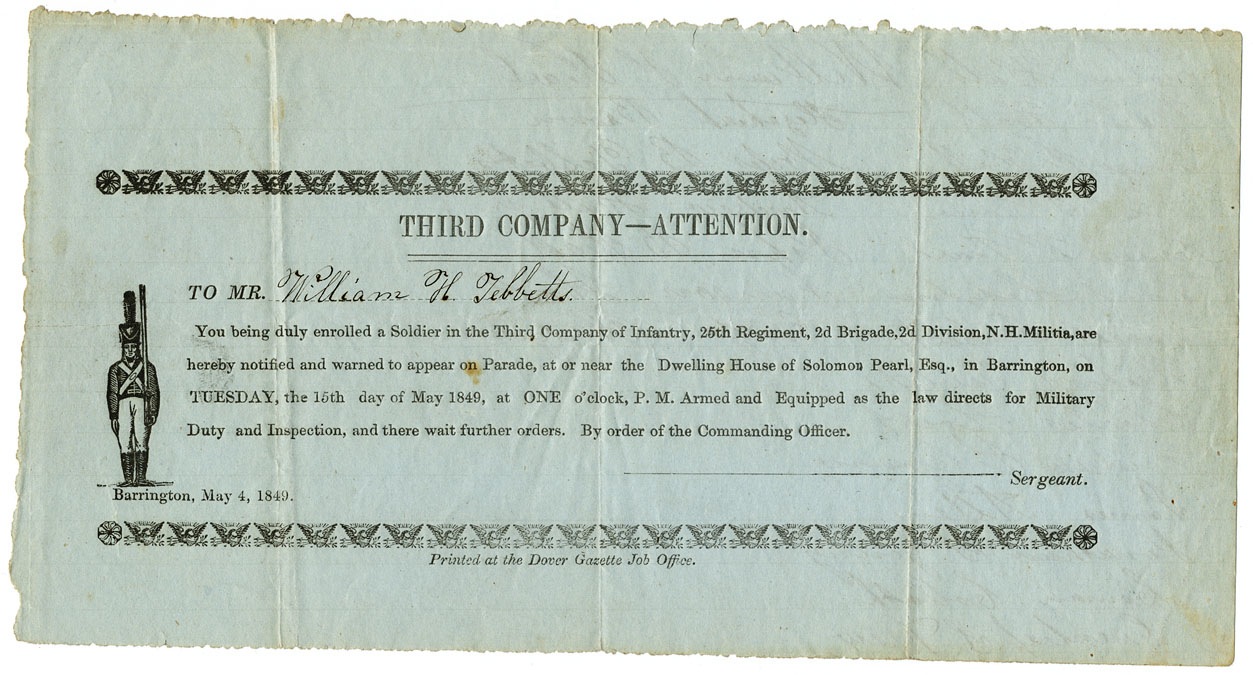 THIRD COMPANY—ATTENTION.
TO MR. William H Tebbetts
You being duly enrolled a Soldier in the Third Company of Infantry, 25th Regiment, 2d Brigade, 2d Division, N.H. Militia, are
hereby notified and warned to appear on Parade, at or near the Dwelling House of Solomon Pearl, Esq., in Barrington, on
TUESDAY, the 15th day of May 1849, at ONE o'clock, P. M. Armed and Equipped as the law directs for Military
Duty and Inspection, and there wait further orders. By order of the Commanding Officer.
Sergeant.
Barrington, May 4, 1849.
Printed at the Dover Gazette Job Office.